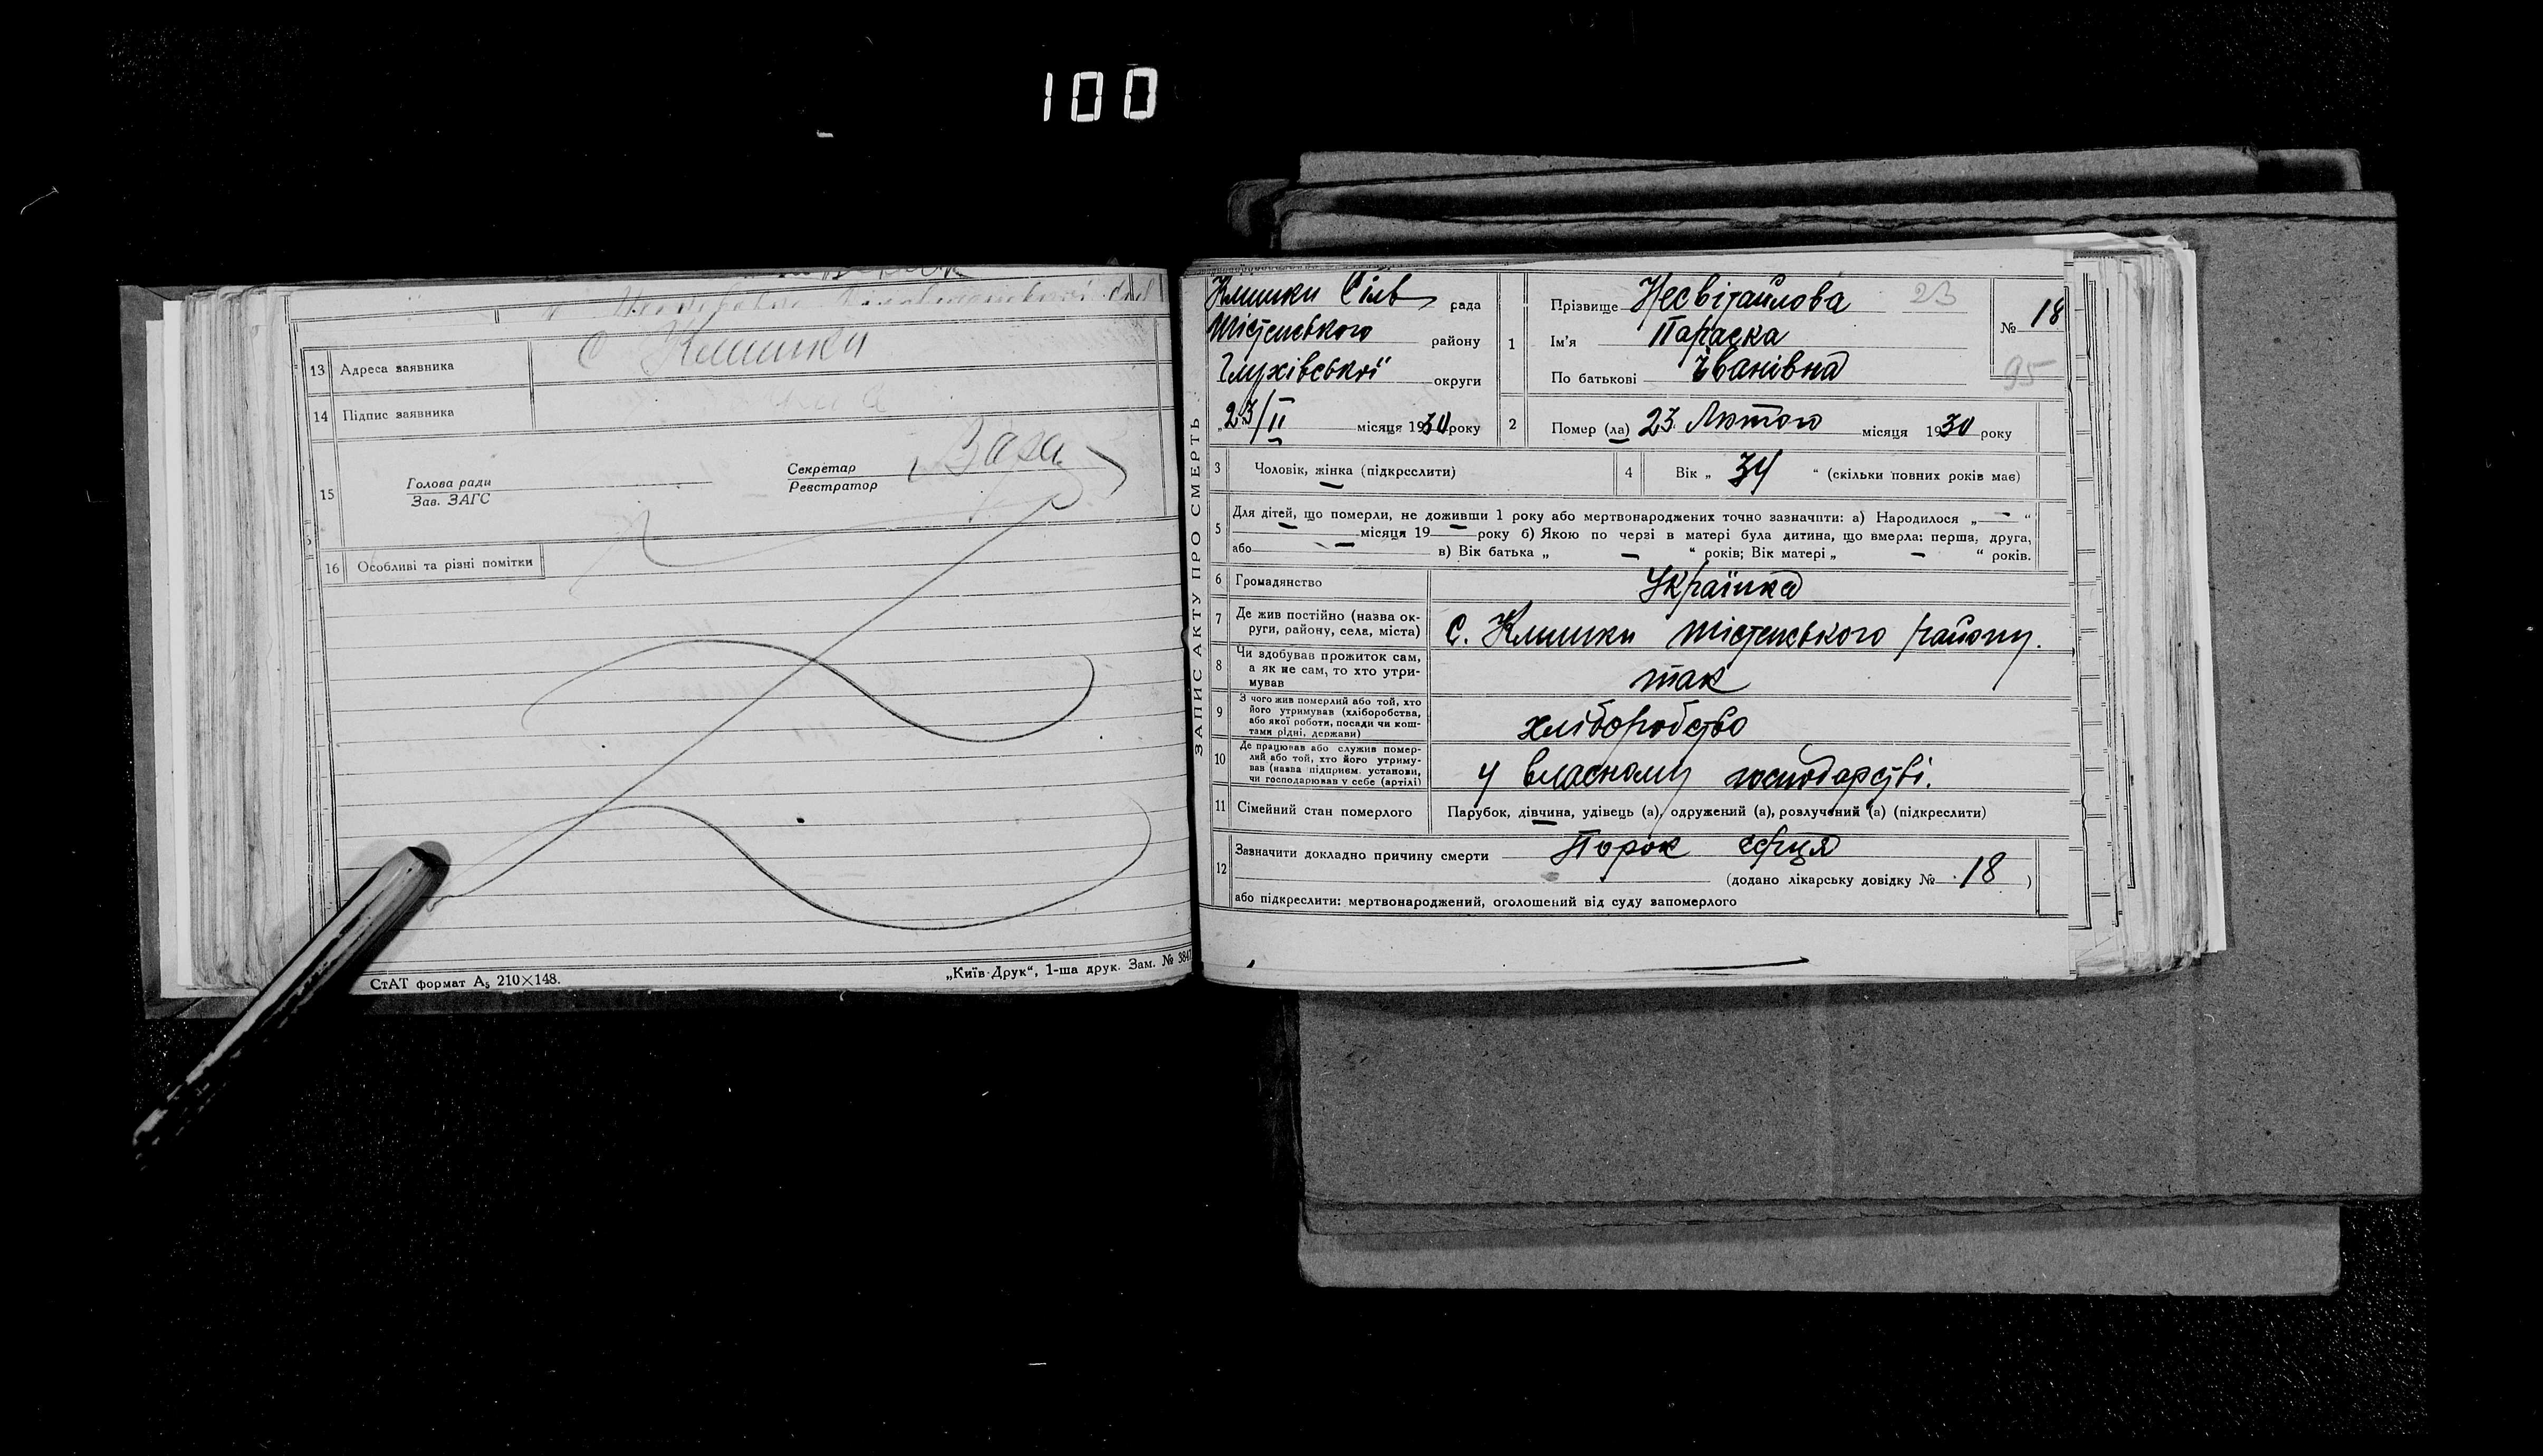 100
с Клишки
13 Адреса заявника
14 Підпис заявника
15 Голова ради
Зав. ЗАГС
Секретар
Реєстратор
16 Особливі та різні помітки
СтАТ формат А₅ 210×148.
„Київ-Друк“, 1-ша друк. Зам. № 3847
ЗАПИС АКТУ ПРО СМЕРТЬ
Клишки Сільрада
Містенського району
Глухівської округи
„23/II місяця 1930 року
1 Прізвище Несвітайлова 23
Ім'я Параска
По батькові Іванівна
№ 18
95
2 Помер (ла) 23 Лютого місяця 1930 року
3 Чоловік, жінка (підкреслити)
4 Вік „ 34 “ (скільки повних років має)
5 Для дітей, що померли, не доживши 1 року або мертвонароджених точно зазначити: а) Народилося „ — “
— місяця 19 — року б) Якою по черзі в матері була дитина, що вмерла: перша, друга,
або — в) Вік батька „ — “ років; Вік матері „ — “ років.
6 Громадянство Українка
7 Де жив постійно (назва ок-
руги, району, села, міста) С. Клишки Містенського району.
8 Чи здобував прожиток сам,
а як не сам, то хто утри-
мував так
9 З чого жив померлий або той, хто
його утримував (хліборобства,
або якої роботи, посади чи кош-
тами рідні, держави) хліборобство
10 Де працював або служив помер-
лий або той, хто його утриму-
вав (назва підприєм. установи,
чи господарював у себе (артілі) у власному господарстві.
11 Сімейний стан померлого Парубок, дівчина, удівець (а), одружений (а), розлучений (а) (підкреслити)
12 Зазначити докладно причину смерти Порок серця
(додано лікарську довідку № 18 )
або підкреслити: мертвонароджений, оголошений від суду запомерлого